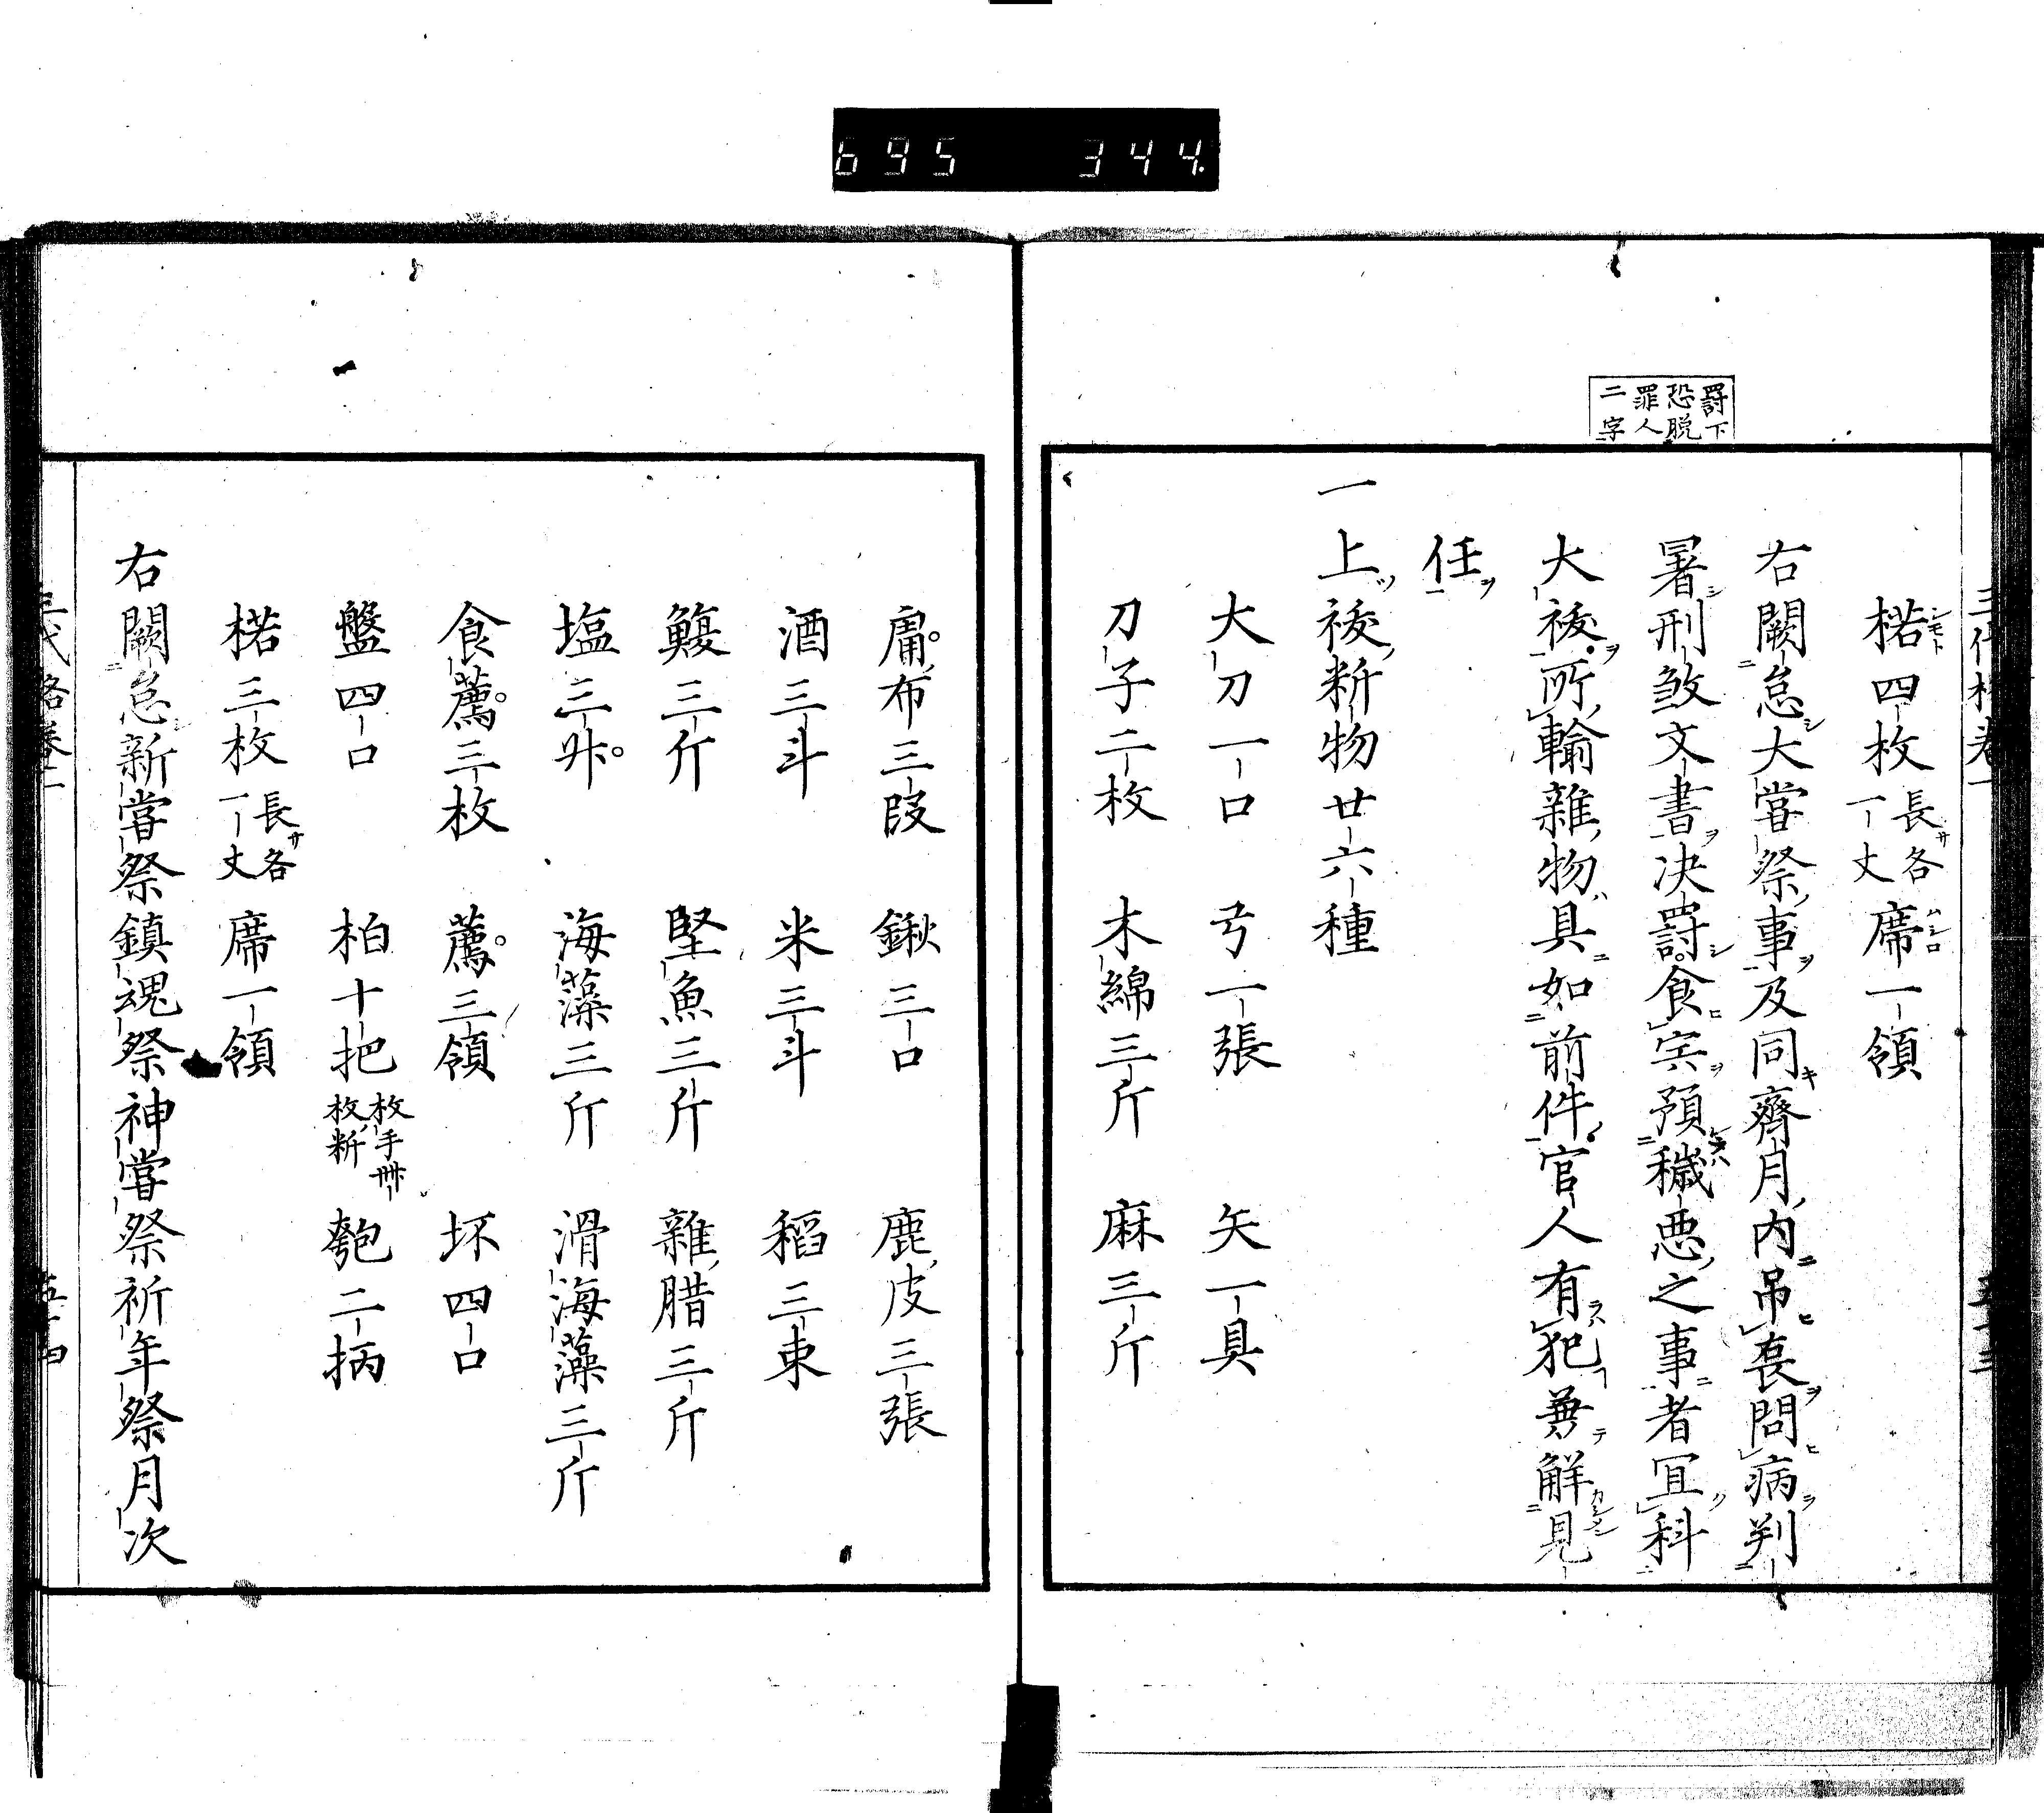 695 344
罸下
恐脱
罪人
二字
楉四枚長各一丈 席一領
右闕怠大甞祭事及同齊月内吊喪問病判
署刑煞文書决罸食宍預穢悪之事者冝科
大祓所輸雜物具如前件官人有犯兼解見
任
一上祓料物廿六種
大刀一口 弓一張 矢一具
刀子二枚 木綿三斤 麻三斤
庸布三段 鍬三口 鹿皮三張
酒三斗 米三斗 稻三束
鰒三斤 堅魚三斤 雜腊三斤
塩三升 海藻三斤 滑海藻三斤
食薦三枚 薦三領 坏四口
盤四口 柏十把枚手卌枚料 匏二柄
楉三枚長各一丈 席一領
右闕怠新甞祭鎮魂祭神甞祭祈年祭月次